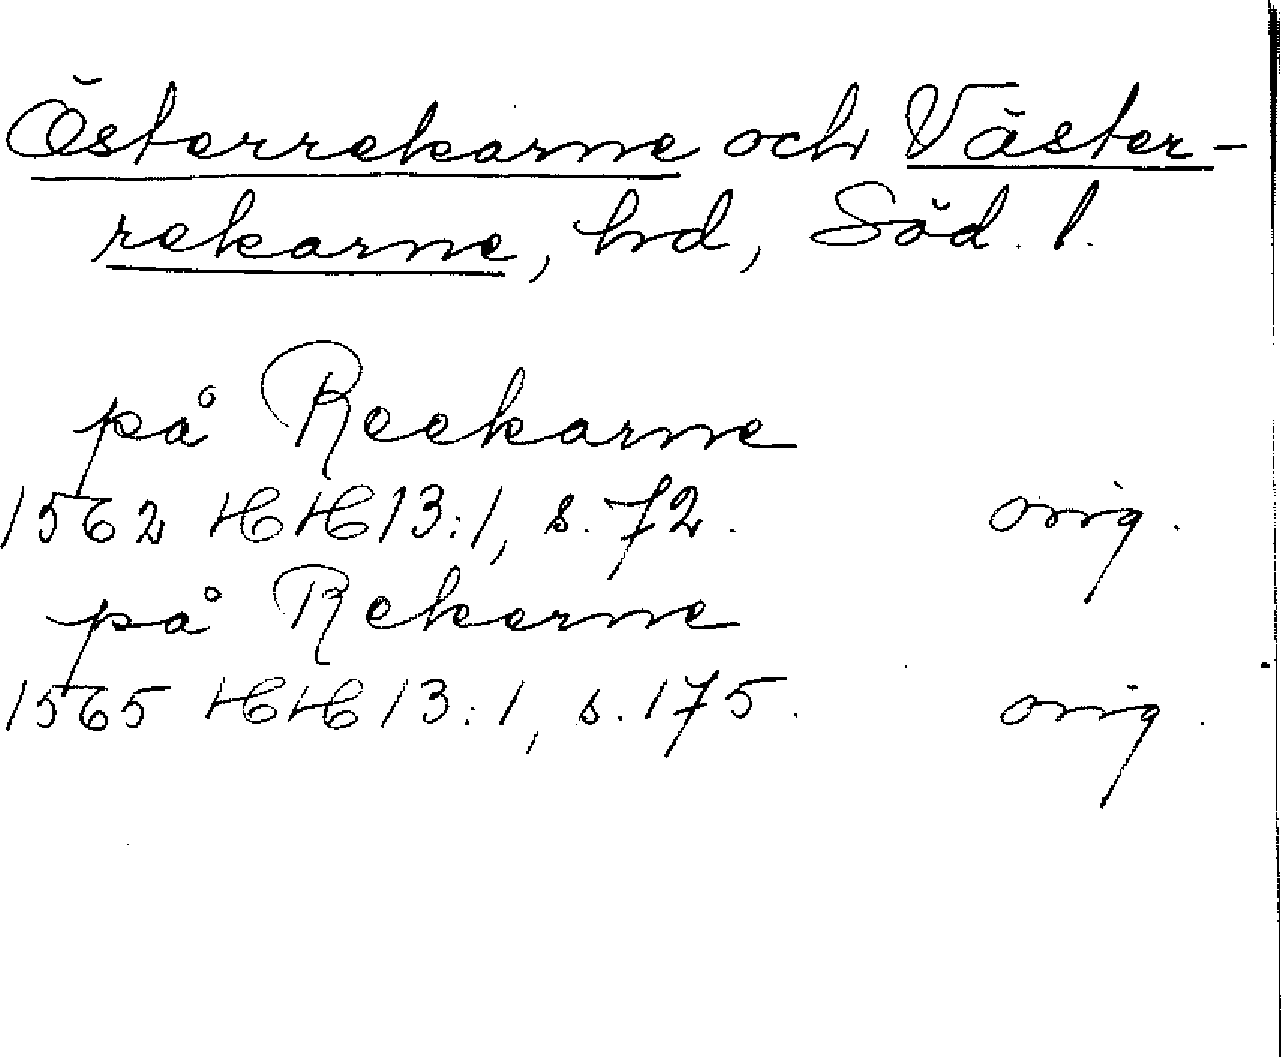 Österrekarne och Väster-
rekarne, hd, Söd. l.
på Reekarne
1562 HH 13:1, s. 72. orig.
på Rekarne
1565 HH 13:1, s. 175. orig.